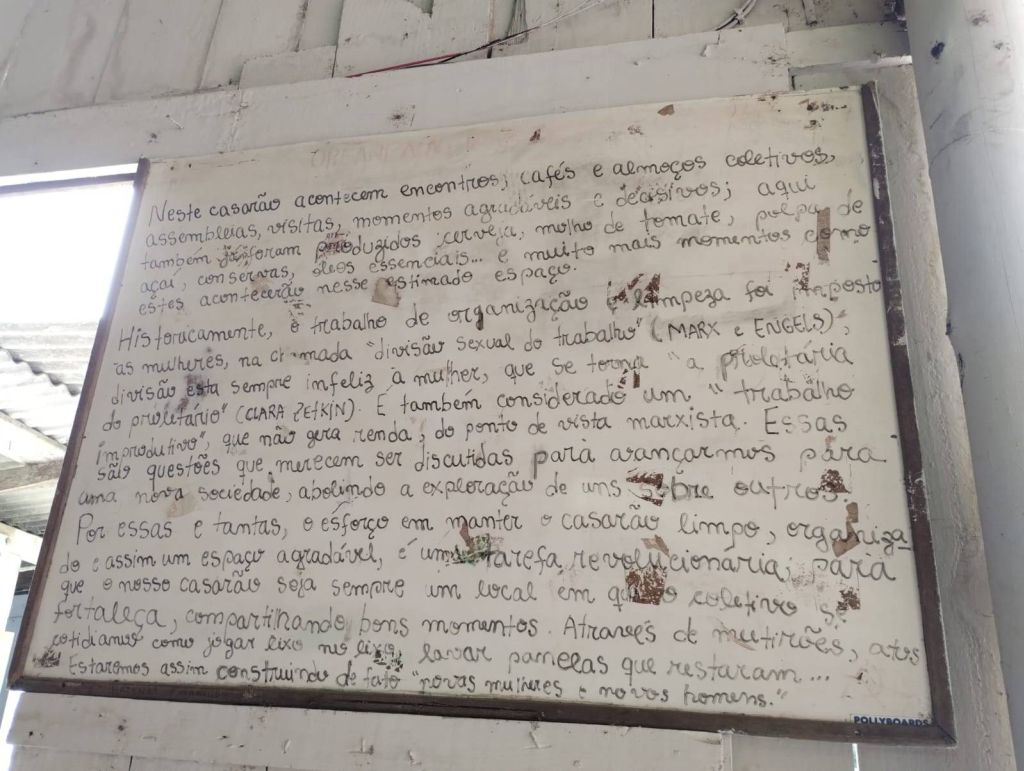 Neste casarão acontecem encontros, cafés e almoços coletivos,
assembleias, visitas, momentos agradáveis e decisivos; aqui
também já foram produzidos cerveja, molho de tomate, polpa de
açaí, conservas, óleos essenciais... e muito mais momentos como
estes acontecerão nesse estimado espaço.
Historicamente, o trabalho de organização e limpeza foi imposto
às mulheres, na chamada "divisão sexual do trabalho" (MARX e ENGELS);
divisão esta sempre infeliz à mulher, que se torna "a proletária
do proletário" (CLARA ZETKIN). É também considerado um "trabalho
improdutivo", que não gera renda, do ponto de vista marxista. Essas
são questões que merecem ser discutidas para avançarmos para
uma nova sociedade, abolindo a exploração de uns sobre outros.
Por essas e tantas, o esforço em manter o casarão limpo, organiza-
do e assim um espaço agradável, é uma tarefa revolucionária; para
que o nosso casarão seja sempre um local em que o coletivo se
fortaleça, compartilhando bons momentos. Através de mutirões, atos
cotidianos como jogar lixo no lixo, lavar panelas que restaram...
Estaremos assim construindo de fato "novas mulheres e novos homens."
POLLYBOARDS